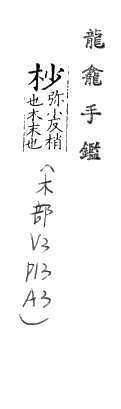 龍龕手鑑
杪弥小反梢
也木末也
(木部
V3
P13
A3)